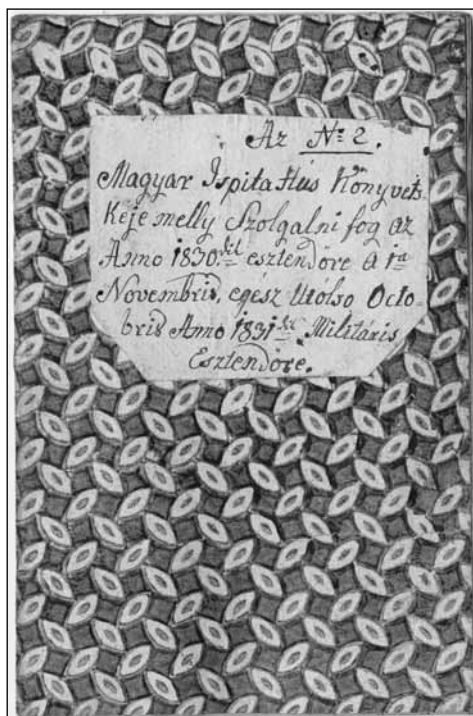 Az No 2.
Magyar Ispita Hús Könyvets
Kéje melly Szolgalni fog az
Anno 1830dik esztendőre a 1a
Novembris, egész utólso Octo-
bris Anno 1831dik Militáris
Esztendőre.